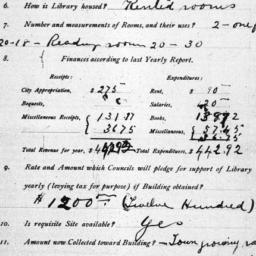 6. How is Library housed? Rented rooms
7. Number and measurements of Rooms, and their uses? 2 - one
20-18 - Reading room 20 - 30
8. Finances according to last Yearly Report.
Receipts: Expenditures:
City Appropriation, $ 275 - Rent, $ 90 -
Bequests, Salaries,
Miscellaneous Receipts, 131 Books,
36 75 Miscellaneous,
Total Revenue for year, $ Total Expenditures, $ 442.92
9. Rate and Amount which Councils will pledge for support of Library
yearly (levying tax for purpose) if Building obtained?
$ 1200 (Twelve Hundred)
10. Is requisite Site available? Yes
11. Amount now Collected toward Building? - Town